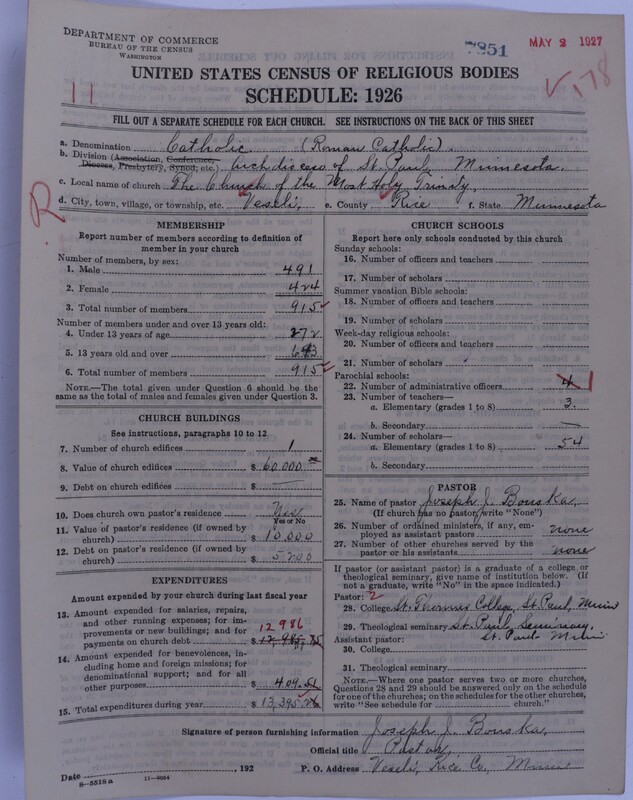 DEPARTMENT OF COMMERCE
BUREAU OF THE CENSUS
WASHINGTON
7851
MAY 2 1927
178
11
UNITED STATES CENSUS OF RELIGIOUS BODIES
SCHEDULE: 1926
FILL OUT A SEPARATE SCHEDULE FOR EACH CHURCH. SEE INSTRUCTIONS ON THE BACK OF THIS SHEET
a. Denomination Catholic (Roman Catholic)
b. Division (Association, Conference, Diocese, Presbytery, Synod, etc.) Archdiocese of St. Paul, Minnesota.
c. Local name of church The Church of the Most Holy Trinity
d. City, town, village, or township, etc. Veseli, e. County Rice f. State Minnesota
R
MEMBERSHIP
Report number of members according to definition of member in your church
Number of members, by sex:
1. Male 491
2. Female 424
3. Total number of members 915
Number of members under and over 13 years old:
4. Under 13 years of age 272
5. 13 years old and over 643
6. Total number of members 915
NOTE.—The total given under Question 6 should be the same as the total of males and females given under Question 3.
CHURCH BUILDINGS
See instructions, paragraphs 10 to 12.
7. Number of church edifices 1
8. Value of church edifices $ 60,000
9. Debt on church edifices $ —
10. Does church own pastor's residence Yes
Yes or No
11. Value of pastor's residence (if owned by church) $ 10,000
12. Debt on pastor's residence (if owned by church) $ 5200
EXPENDITURES
Amount expended by your church during last fiscal year
13. Amount expended for salaries, repairs, and other running expenses; for improvements or new buildings; and for payments on church debt $ 12,985.75
12986
14. Amount expended for benevolences, including home and foreign missions; for denominational support; and for all other purposes $ 409.51
15. Total expenditures during year $ 13,395.26
CHURCH SCHOOLS
Report here only schools conducted by this church
Sunday schools:
16. Number of officers and teachers
17. Number of scholars
Summer vacation Bible schools:
18. Number of officers and teachers
19. Number of scholars
Week-day religious schools:
20. Number of officers and teachers
21. Number of scholars
Parochial schools:
22. Number of administrative officers 4 1
23. Number of teachers—
a. Elementary (grades 1 to 8) 3.
b. Secondary —
24. Number of scholars—
a. Elementary (grades 1 to 8) 54
b. Secondary
PASTOR
25. Name of pastor Joseph J. Bouska,
(If church has no pastor, write "None")
26. Number of ordained ministers, if any, employed as assistant pastors none
27. Number of other churches served by the pastor or his assistants none
If pastor (or assistant pastor) is a graduate of a college or theological seminary, give name of institution below. (If not a graduate, write "No" in the space indicated.)
Pastor: 2
28. College St. Thomas College, St. Paul, Minn
29. Theological seminary St. Paul Seminary,
St. Paul Minn
Assistant pastor:
30. College
31. Theological seminary
NOTE.—Where one pastor serves two or more churches, Questions 28 and 29 should be answered only on the schedule for one of the churches; on the schedules for the other churches, write "See schedule for ........ church."
Signature of person furnishing information Joseph J. Bouska,
Official title Pastor,
Date , 192
P. O. Address Veseli, Rice Co, Minn
8—5518 a
11—9664